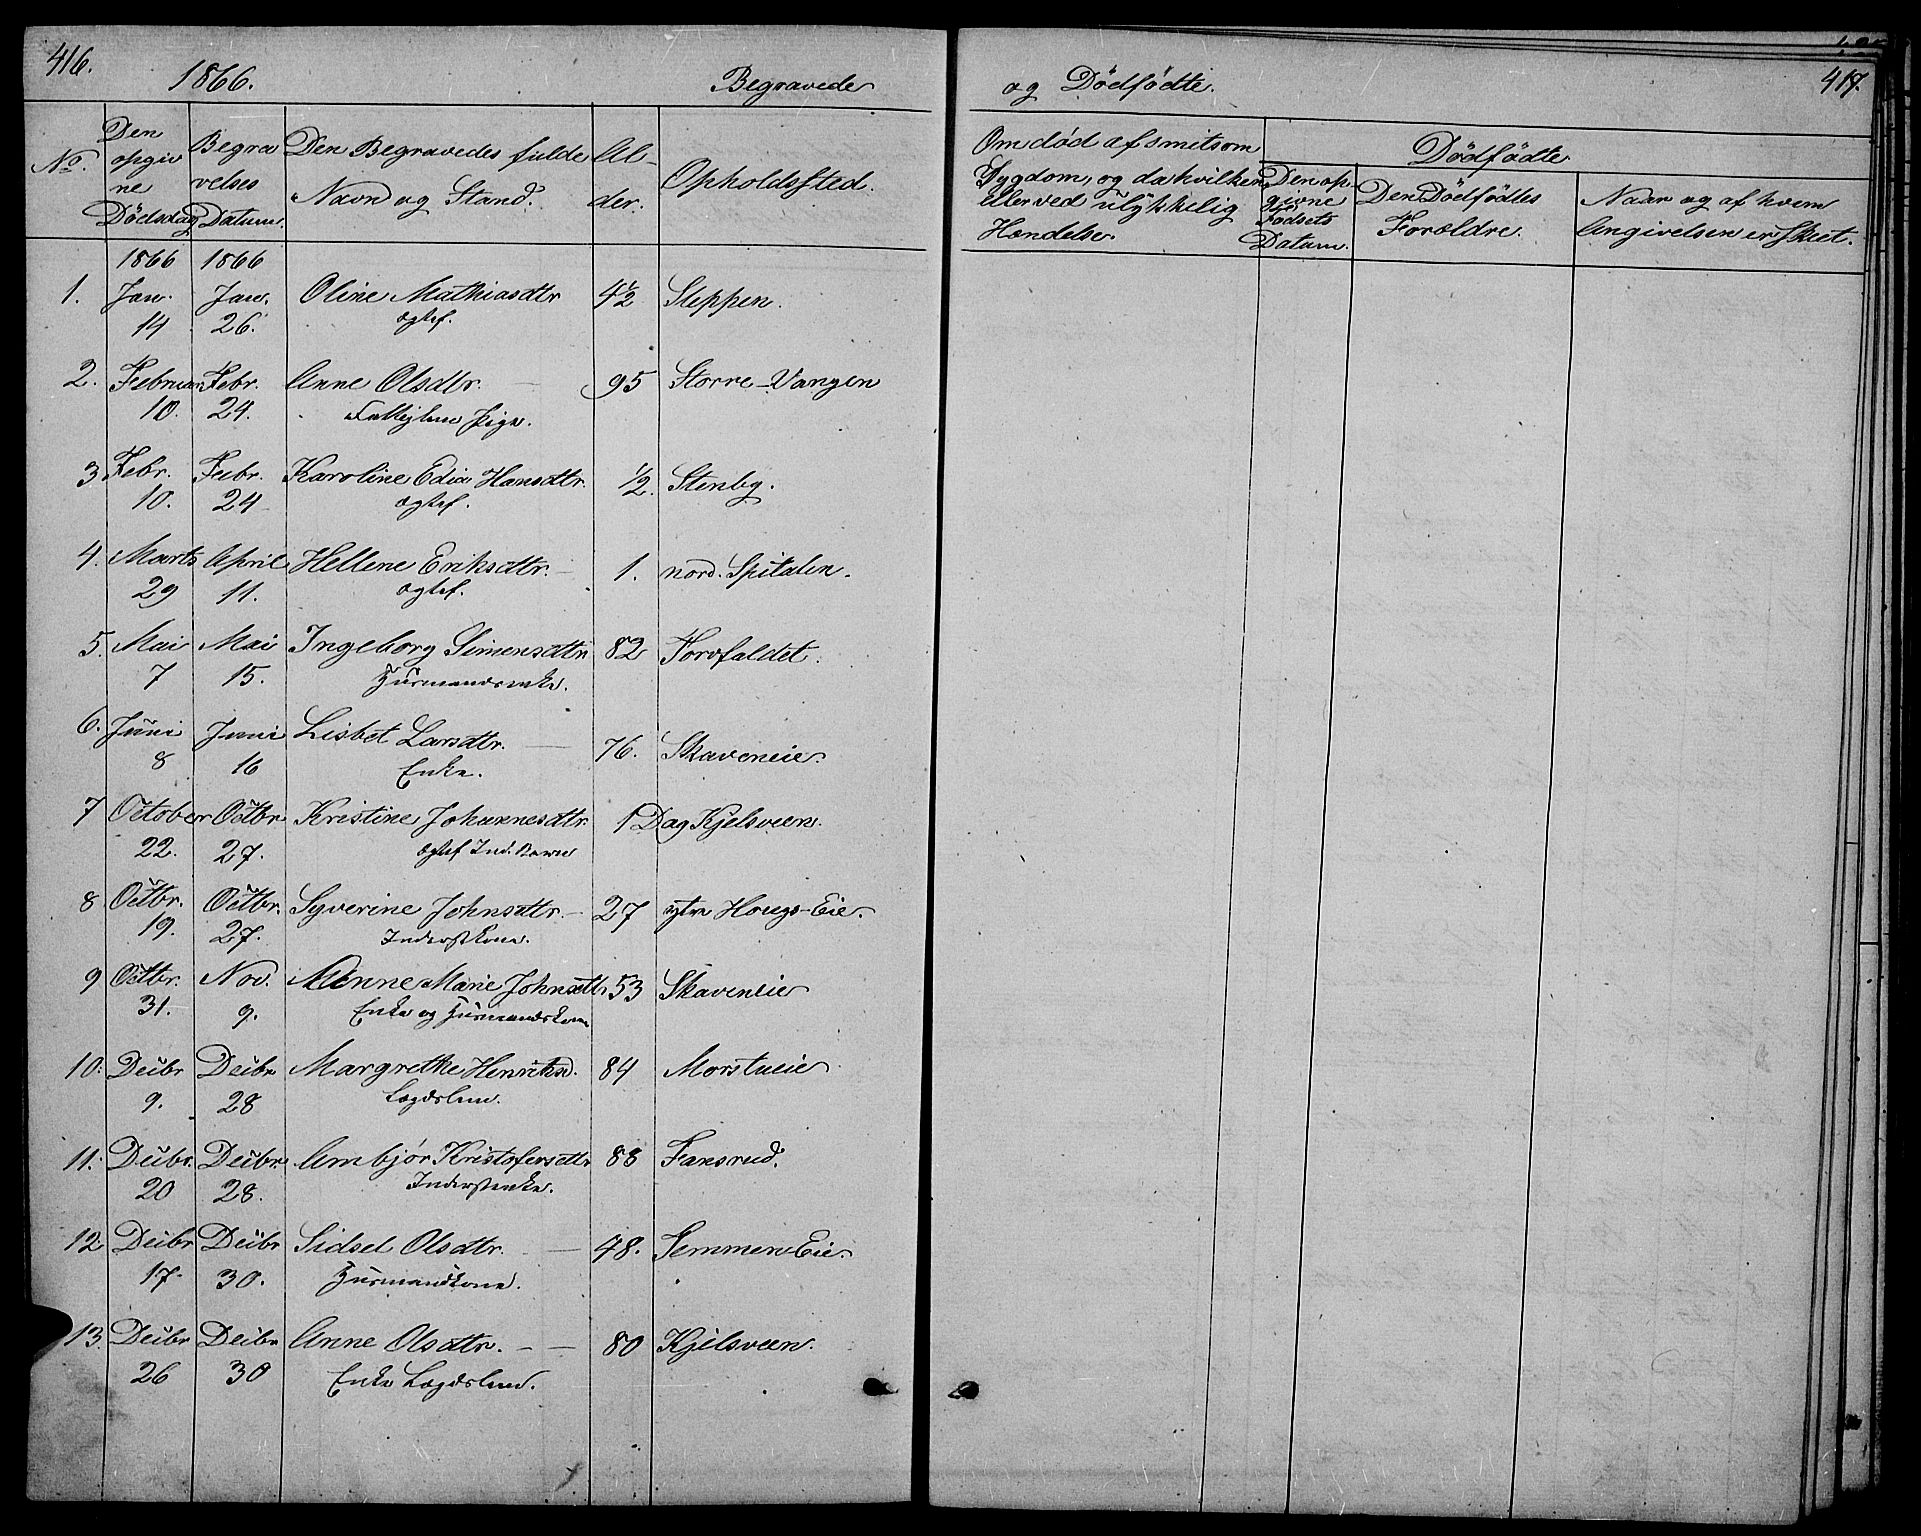 416.
1866.
Begravede
No.
Den opgivne Dødsdag
Begravelses Datum.
Den Begravedes fulde Navn og Stand.
Alder.
Opholdssted.
1866 1866
1. Jan. Jan. Oline Mathiasdtr 4½ Steppen.
14 26. ægtef.
2. Februar Febr. Anne Olsdtr. 95 Storre-Vangen
10. 24. Pige.
3 Febr. Febr. Karoline Edia Hansdtr. ½. Stenby.
10. 24 ægtef.
4. Marts April Hellene Eriksdtr. 1. nord. Spitalen.
29 11. ægtef.
5. Mai Mai Ingeborg Simensdtr 82 Forfaldet.
7 15. Husmandsenke.
6. Juni Juni Lisbet Larsdtr. 76. Skaveneie.
8 16 Enke.
7 October Octbr Kristine Johannesdtr. 1 Dag Kjelsveen.
22. 27. ægtef Ind. Barn
8 Octbr. Octbr. Syverine Johnsdtr. 27 ytre Hougs-Eie.
19. 27. Inderstkone.
9 Octbr. Nov. Anne Marie Johnsdtr 53 Skaveneie
31. 9. Enke og Husmandskone
10. Decbr Decbr Margrethe Henriksd. 84 Morstueie
9. 28 Lægdslem.
11. Decbr. Decbr. Ambjør Kristofersdtr 88 Fansrud.
20 28. Inderstenke.
12 Decbr Decbr Sidsel Olsdtr. 48. Semmen Eie.
17. 30. Husmandkone.
13. Decbr Decbr Anne Olsdtr. 80 Kjelsveen.
26 30 Enke Lægdslem.
og Dødfødte.
417.
Om død af smitsom
Sygdom, og da hvilken,
eller ved ulykkelig
Hændelse.
Dødfødte
Den opgivne Fødsels Datum.
Den Dødfødtes Forældre.
Naar og af hvem
Angivelsen er skeet.